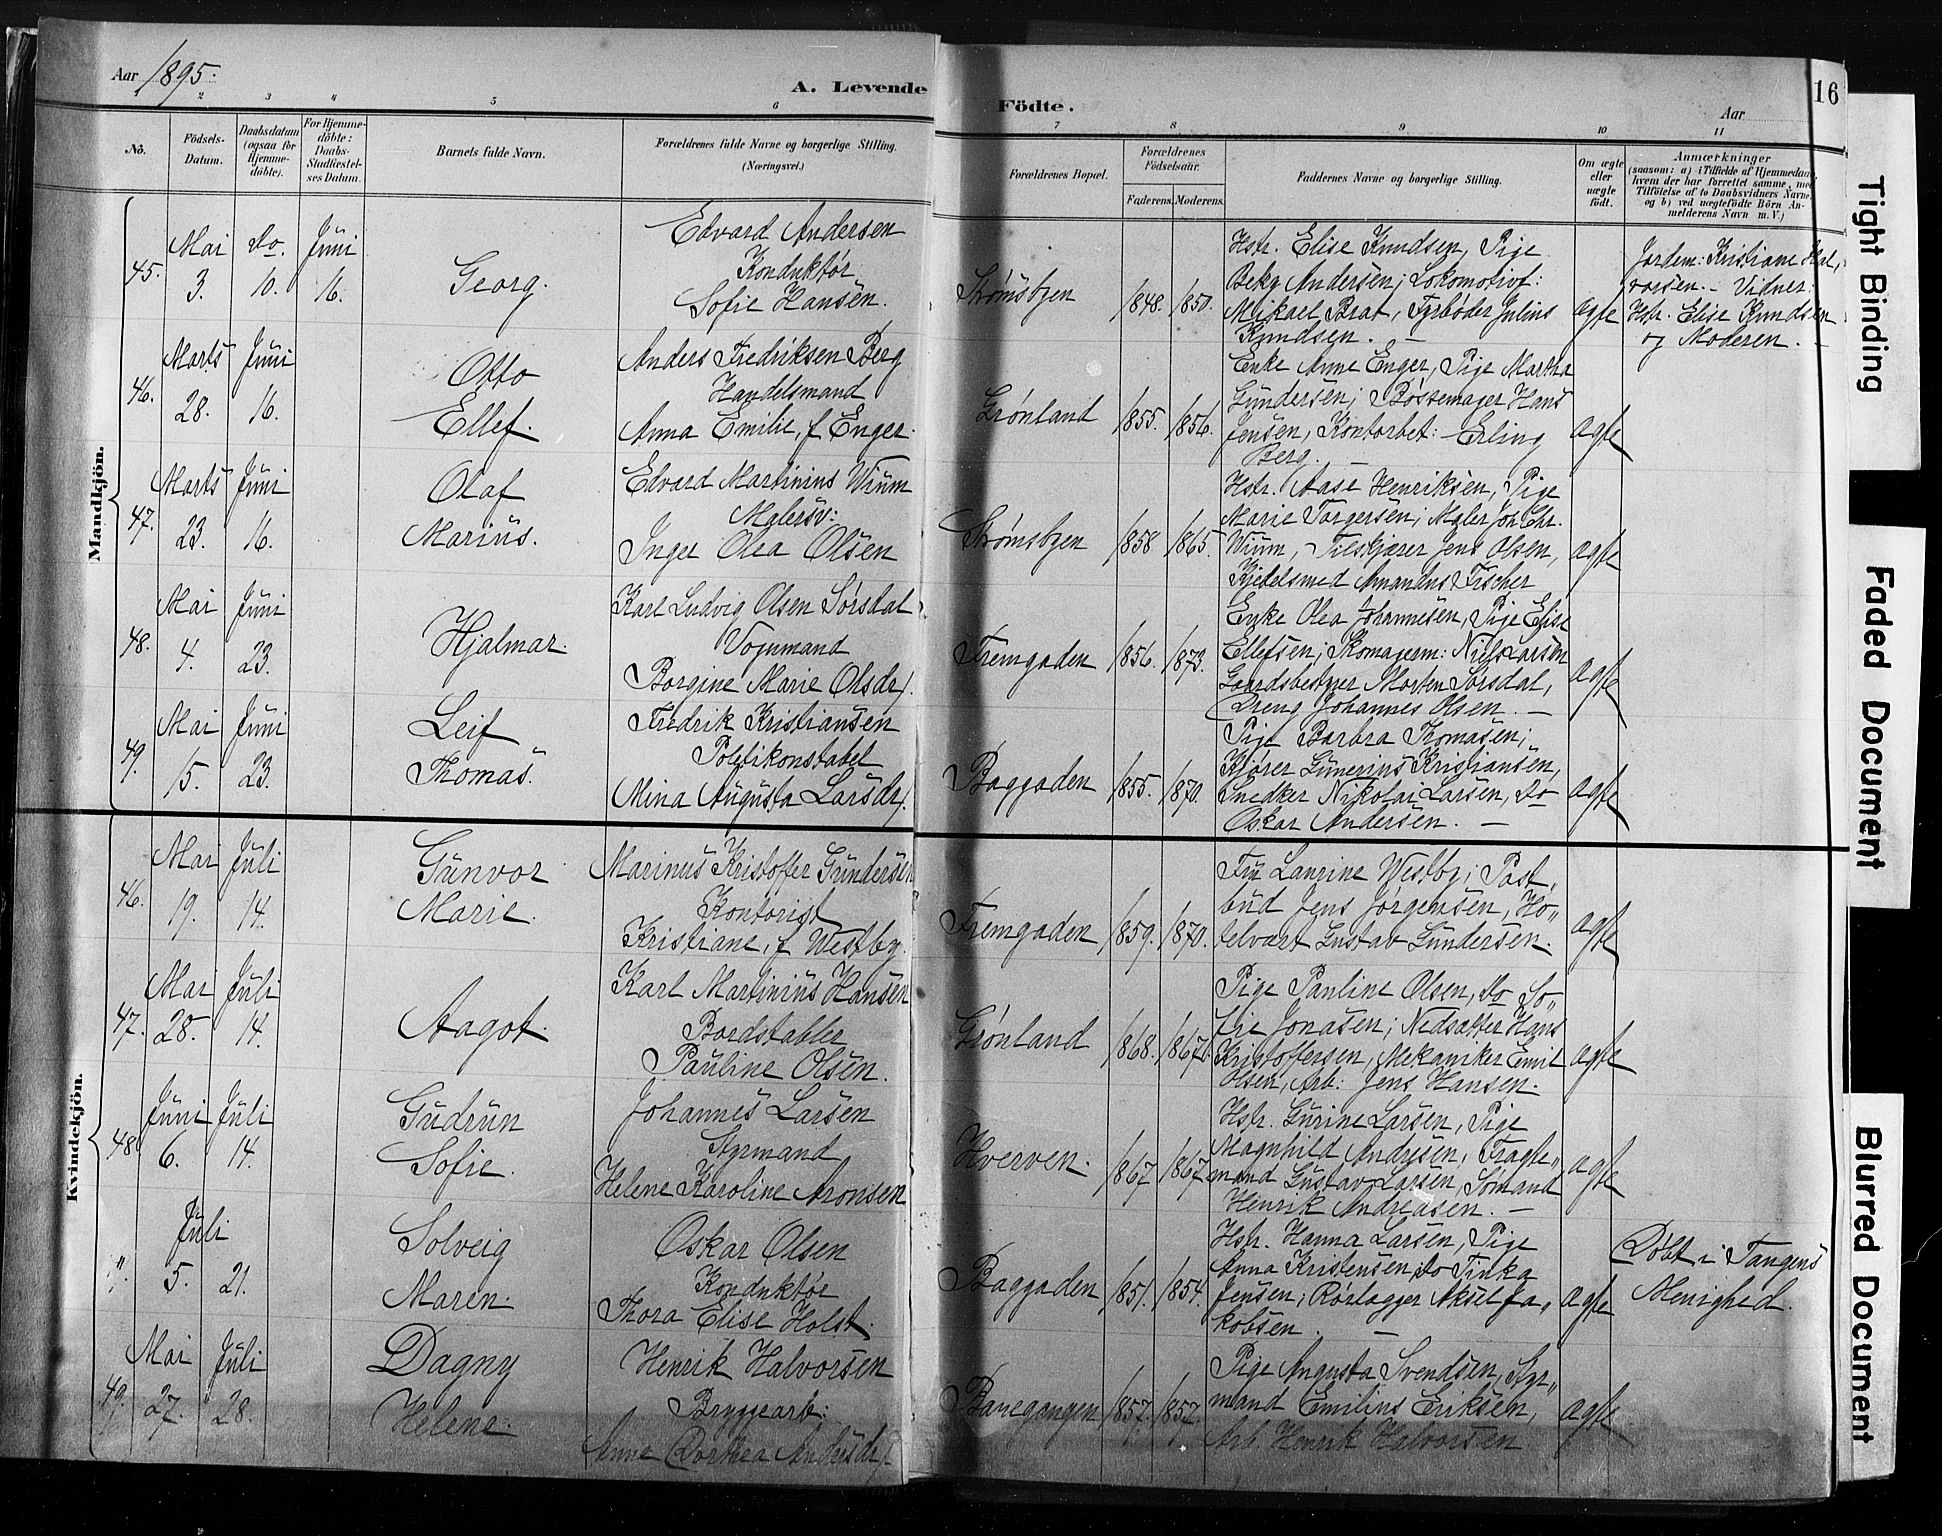 Aar 1895.
A. Levende
Födte.
Aar
16
2 3 4 5 6
7 8 9 10 11
No.
Födsels-
Datum.
Daabsdatum
(ogsaa for
Hjemme-
döbte).
For Hjemme-
döbte:
Daabs-
Stadfæstel-
ses Datum.
Barnets fulde Navn.
Forældrenes fulde Navne og borgerlige Stilling.
(Næringsvei.)
Forældrenes Bopæl.
Forældrenes
Födselsaar.
Faderens. Moderens.
Faddernes Navne og borgerlige Stilling.
Om ægte
eller
uægte
födt.
Anmærkninger
(saasom: a) i Tilfælde af Hjemmedaab,
hvem der har forrettet samme, med
Tilföielse af to Daabsvidners Navne,
og b) ved uægtefödte Börn An-
melderens Navn m. V.)
Mandkjön.
45.
Mai
3.
do.
10.
Juni
16.
Georg.
Edvard Andersen
Konduktør
Sofie Hansen.
Strømsbyen
1848. 1850.
Hstr. Elise Knudsen, Pige
Berg Andersen; Lokomotivf:
Mikael Brat, Fyrbøder Julius
Knudsen. —
ægte
Jordem: Kristiane Hal,
vorsen. — Vidner:
Hstr. Elise Knudsen
og Moderen. —
46.
Marts
28.
Juni
16.
Otto
Ellef.
Anders Fredriksen Berg
Handelsmand
Anna Emilie, f Enger.
Grønland
1855. 1856.
Enke Anne Enger, Pige Martha
Gundersen; Bøssemager Hans
Jensen, Kontorbet: Erling
Berg. —
ægte
47.
Marts
23.
Juni
16.
Olaf
Marius.
Edvard Martinius Wium
Malersv:
Inger Olea Olsen
Strømsbyen
1858 1865.
Hstr. Aase Henriksen, Pige
Marie Torgersen; Maler Joh Chr.
Wium, Tilskjærer Jens Olsen,
Kjedelsmed Amandus Fischer
ægte
48.
Mai
4.
Juni
23.
Hjalmar.
Karl Ludvig Olsen Sørsdal
Vognmand
Borgine Marie Olsdr.
Fremgaden
1856. 1873.
Enke Olea Johannesen, Pige Elise
Ellefsen; Skomagerm: Niels Larsen
Gaardsbestyer Morten Sørsdal,
Dreng Johannes Olsen. —
ægte
49.
Mai
15.
Juni
23.
Leif
Thomas.
Fredrik Kristiansen
Politikonstabel
Mina Augusta Larsdr.
Baggaden
1855. 1870.
Pige Barbra Thomasen;
Kjører Gunerius Kristiansen,
Snedker Nikolai Larsen, do
Oskar Andersen. —
ægte
Kvindekjön.
46.
Mai
19.
Juli
14.
Gunvor
Marie.
Marinus Kristoffer Gundersen
Kontorist
Kristiane, f Westby.
Fremgaden
1859. 1870.
Fru Laurine Westby; Post,
bud Jens Jørgensen, Ho„
telvært Gustav Gundersen.
ægte
47.
Mai
28.
Juli
14.
Aagot.
Karl Martinius Hansen
Bordstabler
Pauline Olsen.
Grønland
1868. 1867.
Pige Pauline Olsen, do So„
fie Jonasen; Nedsætter Hans
Kristoffersen, Mekaniker Emil
Olsen, Arb: Jens Hansen.
ægte
48.
Juni
6.
Juli
14.
Gudrun
Sofie.
Johannes Larsen
Styrmand
Helene Karoline Aronsen
Hverven.
1867 1867
Hstr. Gurine Larsen, Pige
Magnhild Andresen; Fragte„
mand Gustav Larsen, Sømand
Henrik Andreasen. —
ægte
„
Juli
5. 21.
Solveig
Maren.
Oskar Olsen
Konduktør
Thora Elise Holst.
Baggaden
1851. 1854.
Hstr. Hanna Larsen, Pige
Anna Kristensen, do Tinka
Jensen; Rørlægger Aksel Ja„
kobsen. —
ægte
Døbt i Tangens
Menighed.
49.
Mai
27.
Juli
28.
Dagny
Helene.
Henrik Halvorsen
Bryggearb:
Anne Dorthea Andersdr.
Banegangen
1857. 1857.
Pige Augusta Svendsen, Styr„
mand Emilius Eriksen,
Arb. Henrik Halvorsen
ægte
Tight Binding
Faded Document
Blurred Document